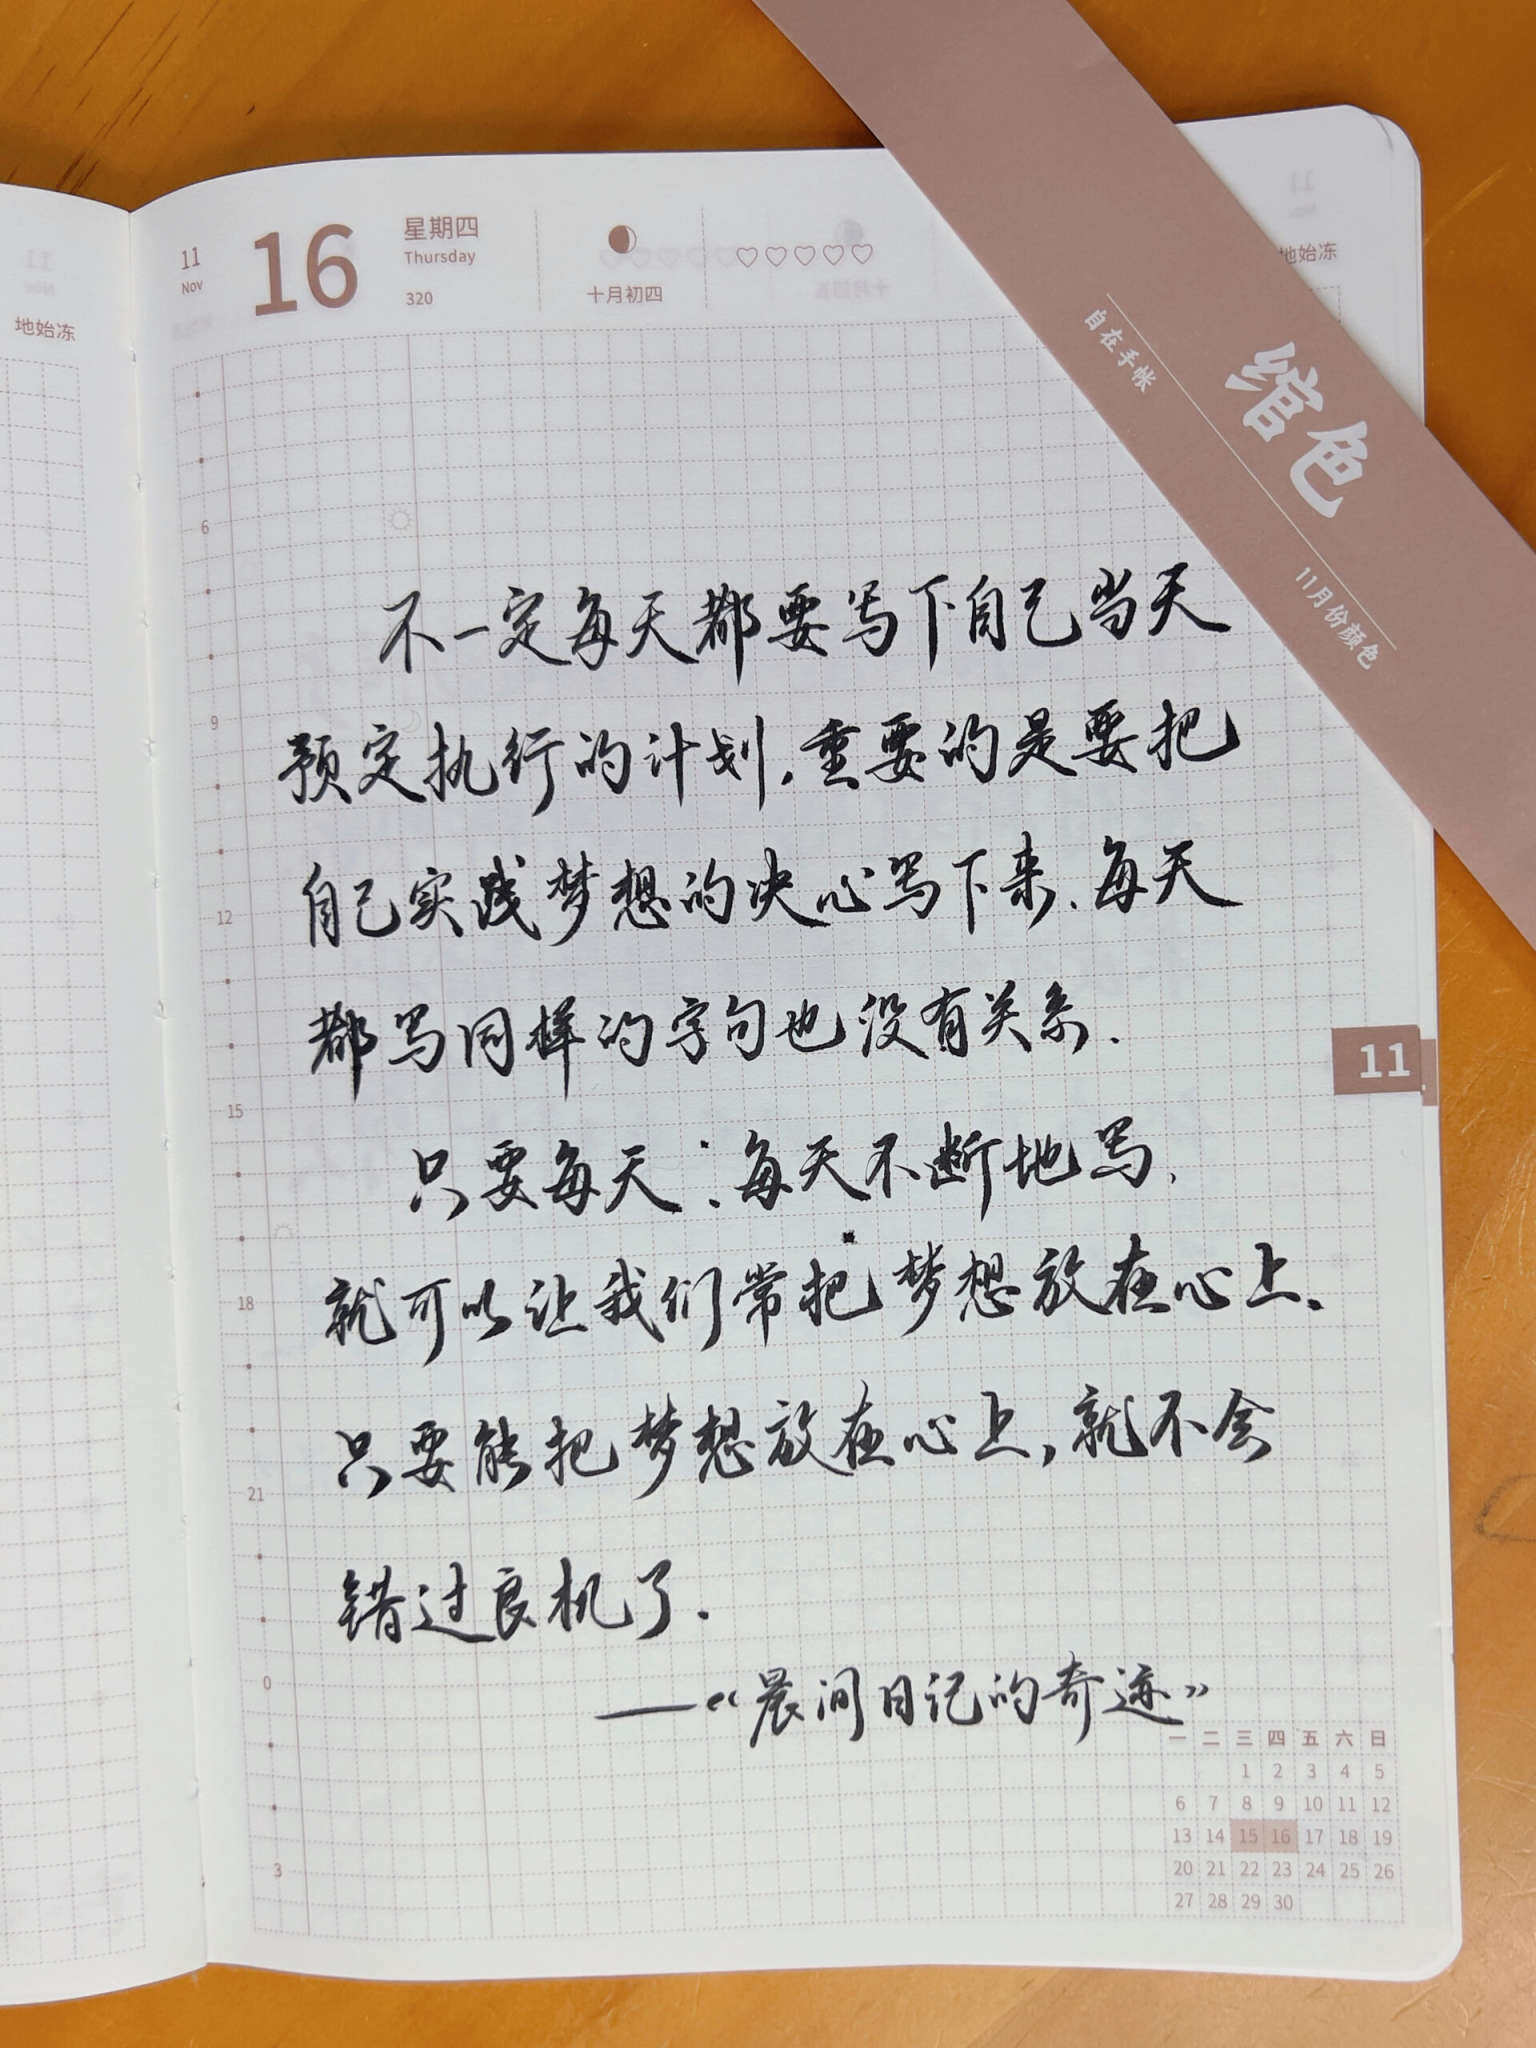 地始冻
11
Nov
16
星期四
Thursday
320
十月初四
地始冻
自在手帐
绾色
11月份颜色
6
不一定每天都要写下自己当天
9
预定执行的计划.重要的是要把
自己实践梦想的决心写下来.每天
12
都写同样的字句也没有关系.
15
11
只要每天.每天不断地写.
就可以让我们常把梦想放在心上.
18
只要能把梦想放在心上,就不会
21
错过良机了.
0
——“晨间日记的奇迹”
一 二 三 四 五 六 日
1 2 3 4 5
6 7 8 9 10 11 12
13 14 15 16 17 18 19
3
20 21 22 23 24 25 26
27 28 29 30